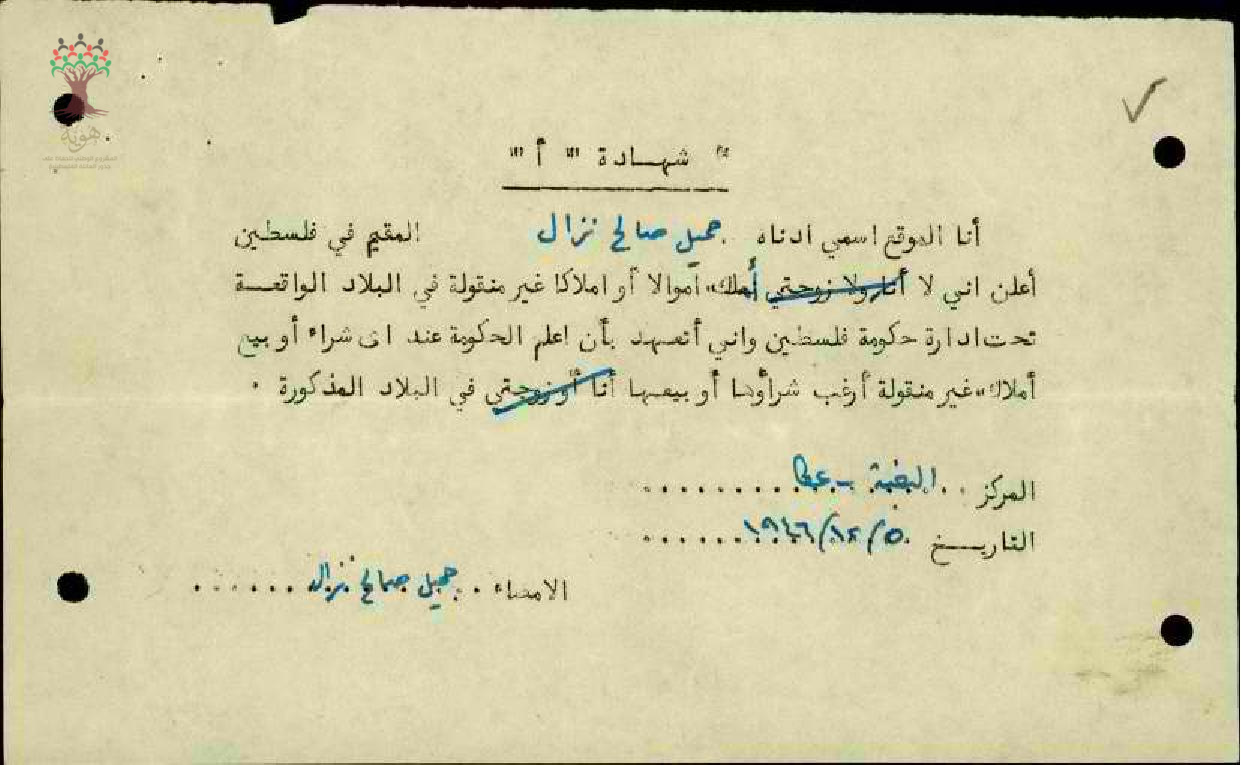 هوية
" شهادة " أ "
أنا الموقع اسمي ادناه جميل صالح نزال المقيم في فلسطين
أعلن اني لا أنا ولا زوجتي أملك اموالا أو املاكا غير منقولة في البلاد الواقعة
تحت ادارة حكومة فلسطين واني أتعهد بأن اعلم الحكومة عند اى شراء أو بيع
أملاك غير منقولة أرغب شراؤها أو بيعها أنا أو زوجتي في البلاد المذكورة .
المركز .. - عكا ........
التاريخ ٥/١٢/١٩٤٦ ......
الامضاء .. جميل صالح نزال ......